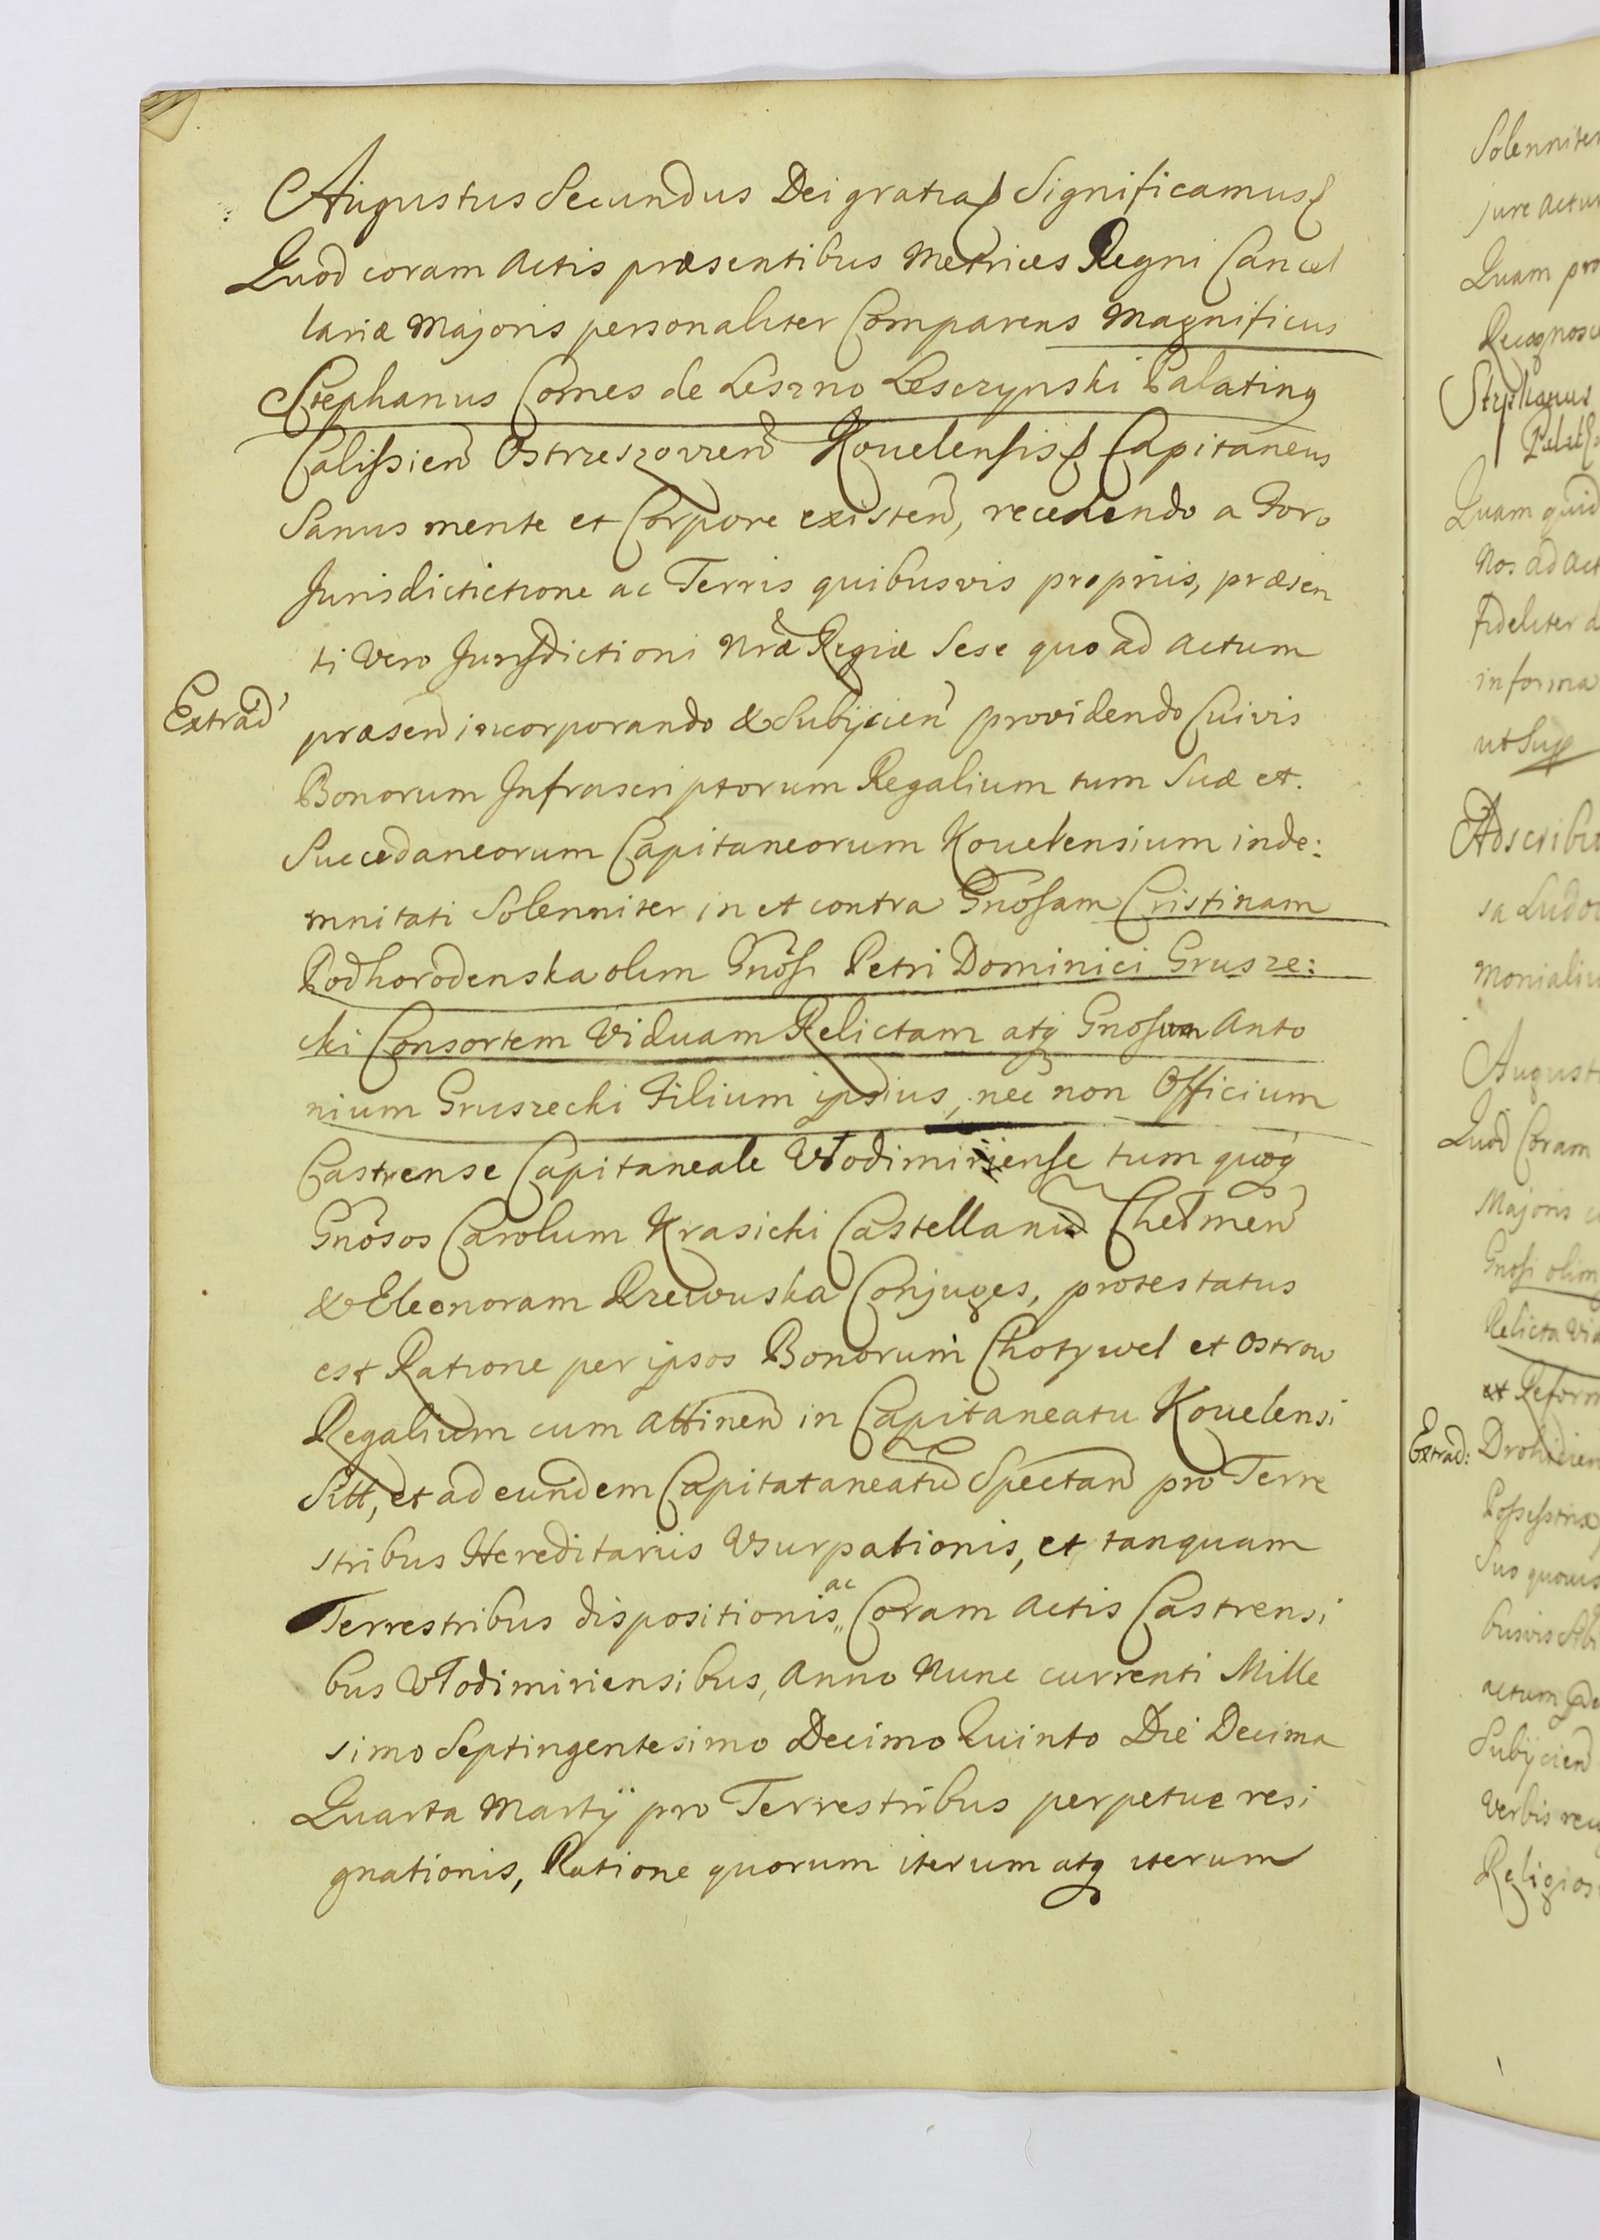 Augustus Secundus Dei gratia Significamus
Quod coram Actis præsentibus Metrices Regni Cancel
lariæ Majoris personaliter Comparens Magnificus
Stephanus Comes de Leszno Leszczynski Palatinq
Calissien Ostrzeszovien Kouelensis Capitaneus
Sanus mente et Corpore existen, recedendo a Foro
Jurisdictictione ac Terris quibusvis propriis, præsen
ti Vero Jurisdictioni Nrã Regiæ Sese quo ad Actum
Extrad præsen incorporando & Subijcien providendo Cuivis
Bonorum Infrascriptorum Regalium tum Suæ et
Succedaneorum Capitaneorum Kouelensium inde:
mnitati Solenniter in et contra Gnosam Cristinam
Podhorodenska olim Gnosi Petri Dominici Grusze:
cki Consortem Viduam Relictam atq Gnosum Anto
nium Gruszecki Filium ipsius, nec non Officium
Castrense Capitaneale Włodimiriense tum quoq
Gnosos Carolum Krasicki Castellanid Chełmen
& Eleonoram Rzewuska Conjuges, protestatus
est Ratione per ipsos Bonorum Chotywel et Ostrow
Regalium cum Attinen in Capitaneatu Kouelensi
Sitt, et ad eundem Capitataneatu Spectan pro Terre
stribus Hereditariis Usurpationis, et tanquam
Terrestribus dispositionis, ac Coram Actis Castrensi
bus Włodimiriensibus, Anno Nunc currenti Mille
simo Septingentesimo Decimo Quinto Die Decima
Quarta Martij pro Terrestribus perpetuæ resi
gnationis, Ratione quorum iterum atq iterum
Solenniter
jure
Quam pro
Stephanus
Quam quid
Nos ad
fideliter
informa
ut Sup
sa Ludo
Monialiu
August
Quod Coram
Majoris
Gnosi olim
Relicta
et Reform
Extrad: Drohicien
Suo quovis
actum
Subijcien
Verbis
Religios